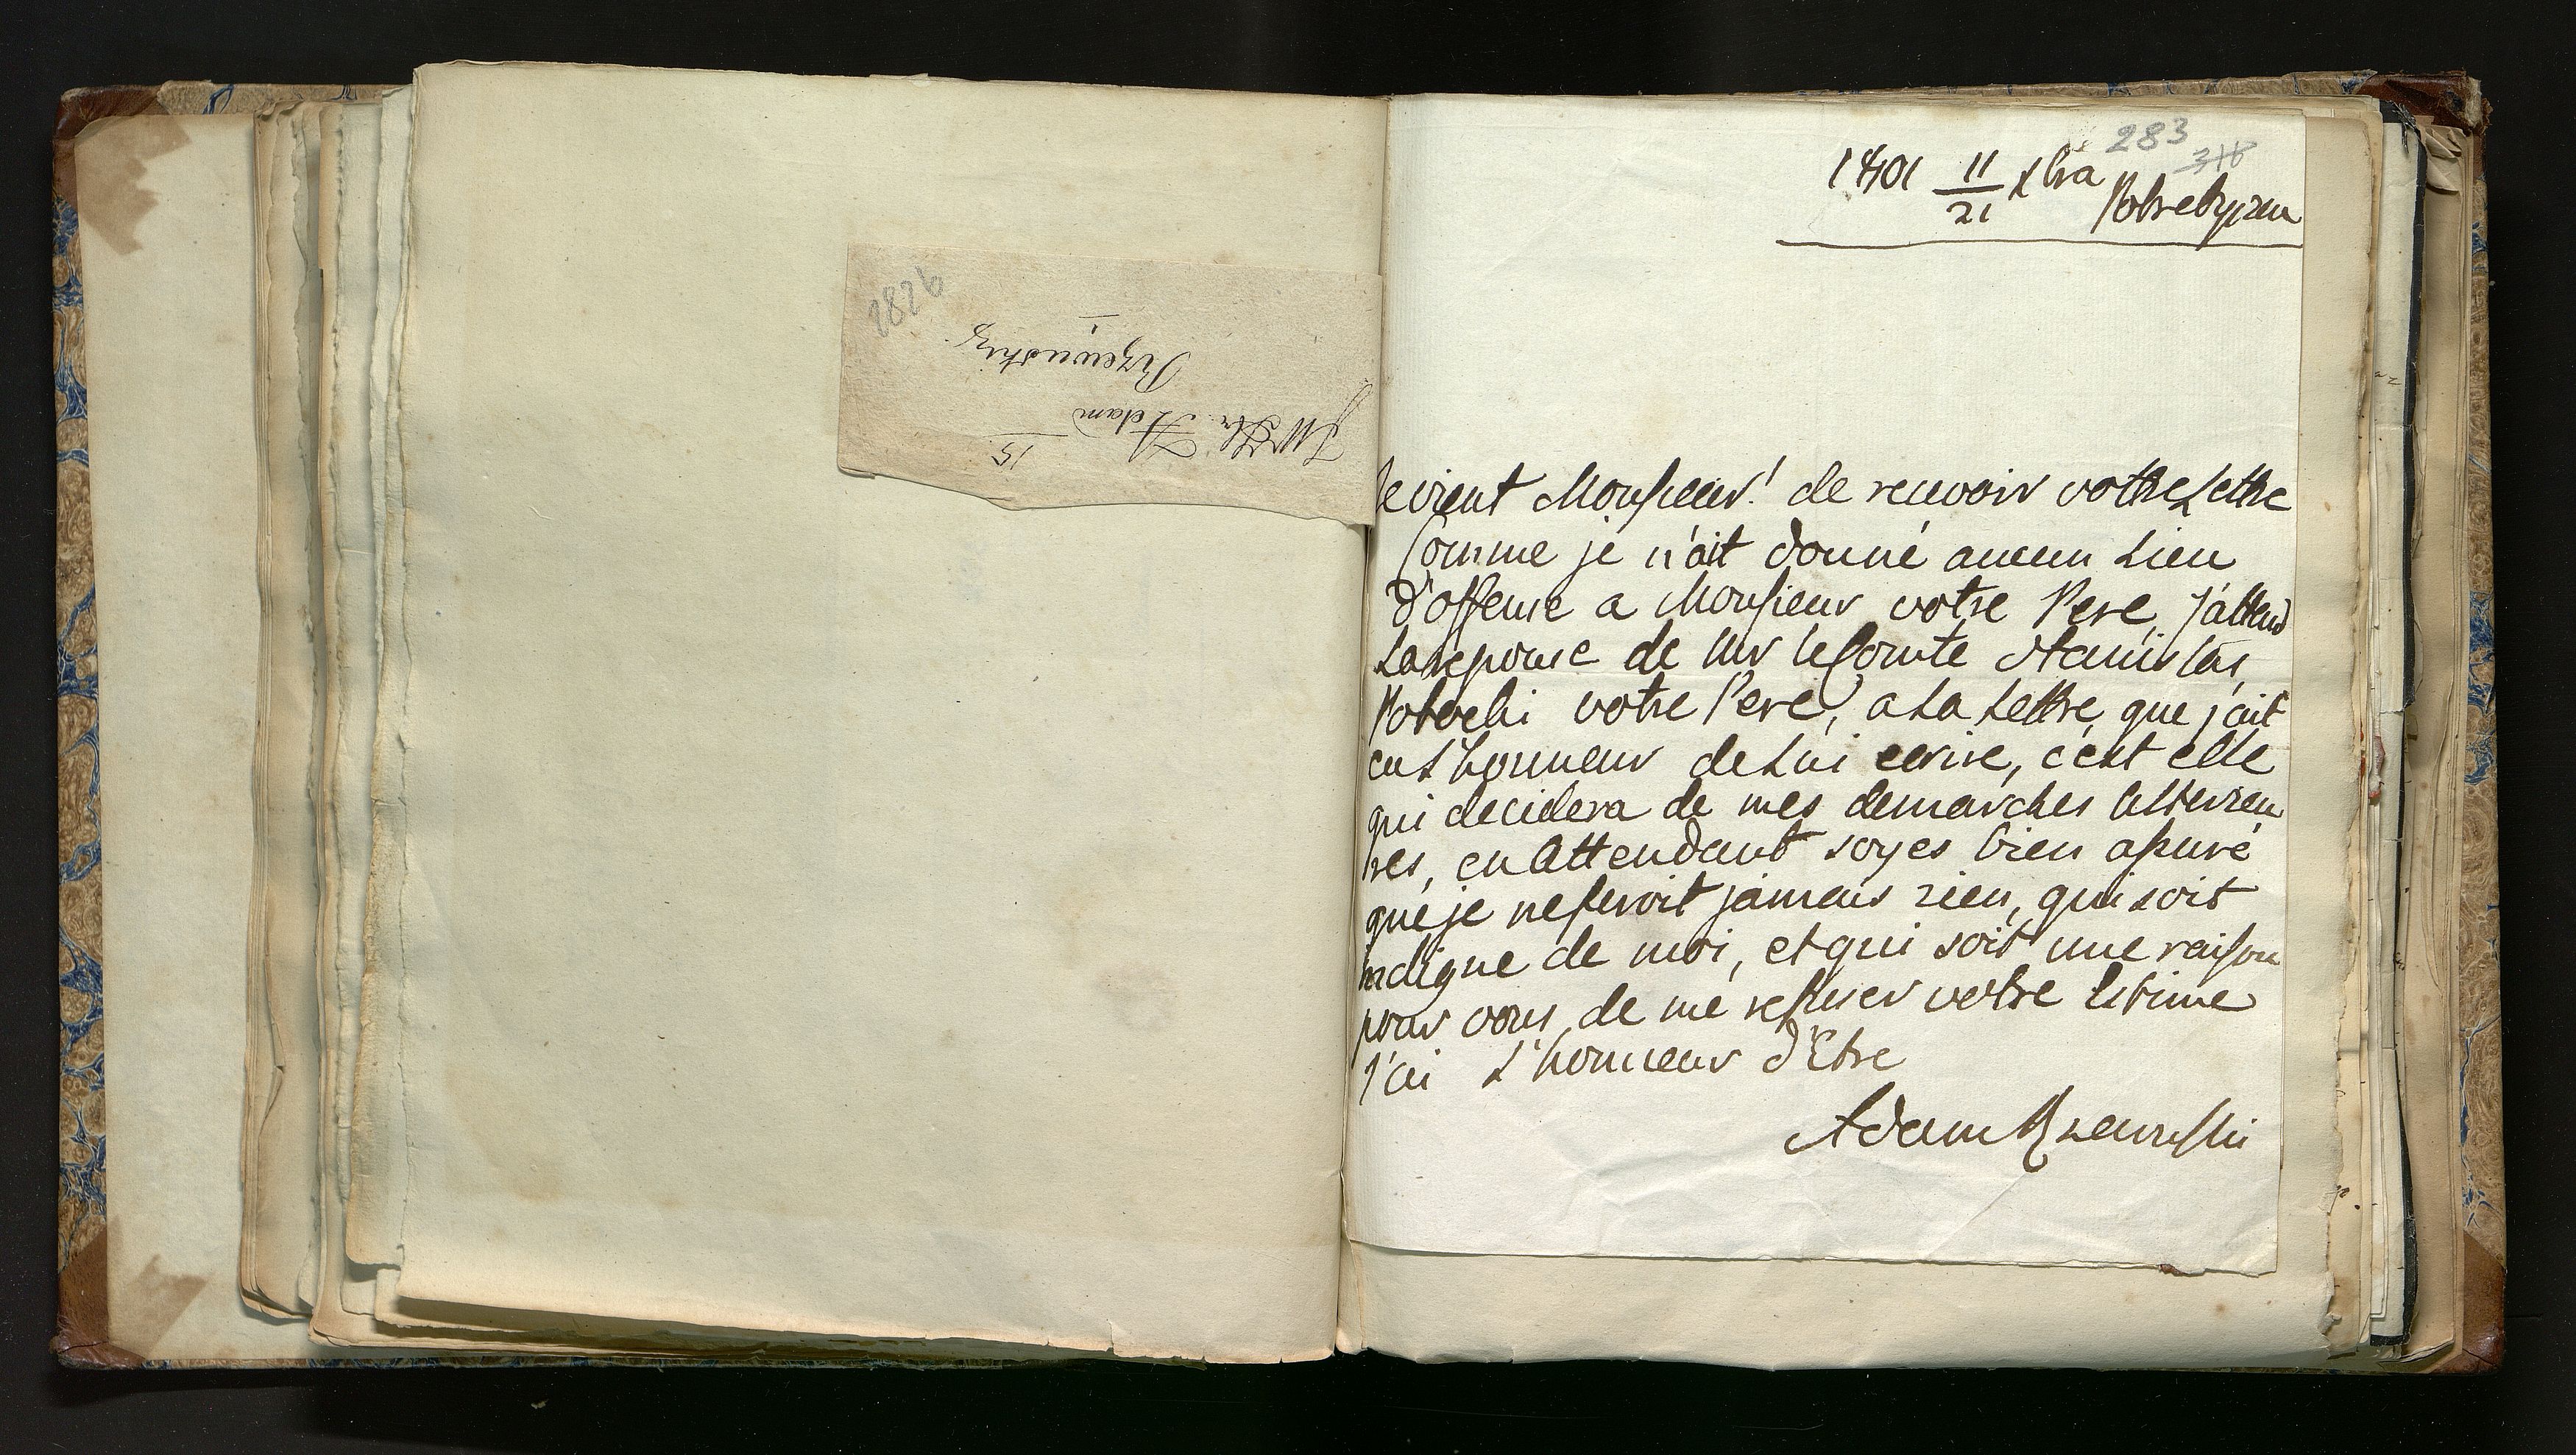 282b
JW Hr. Adam
15
Rzewuski
I
283
318
1801 11/21 Xbra
Pohrebyszcze
Je vient Monsieur! de recevoir votre Lettre
Comme je n'ait donné aucun Lieu
d'offense a Monsieur votre Pere, j'attend
La reponse de Mr le Comte Stanislas
Potocki votre Pere, a La Lettre, que j'ait
eu L'honneur de Lui ecrire, c'est elle
qui decidera de mes demarches Ulterieu
res, en Attendant soyes bien assuré
que je neferoit jamais rien, qui soit
indigne de moi, et qui soit une raison
pour vous, de me refuser votre Estime
J'ai L'honneur d'Etre
Adam Rzewuski